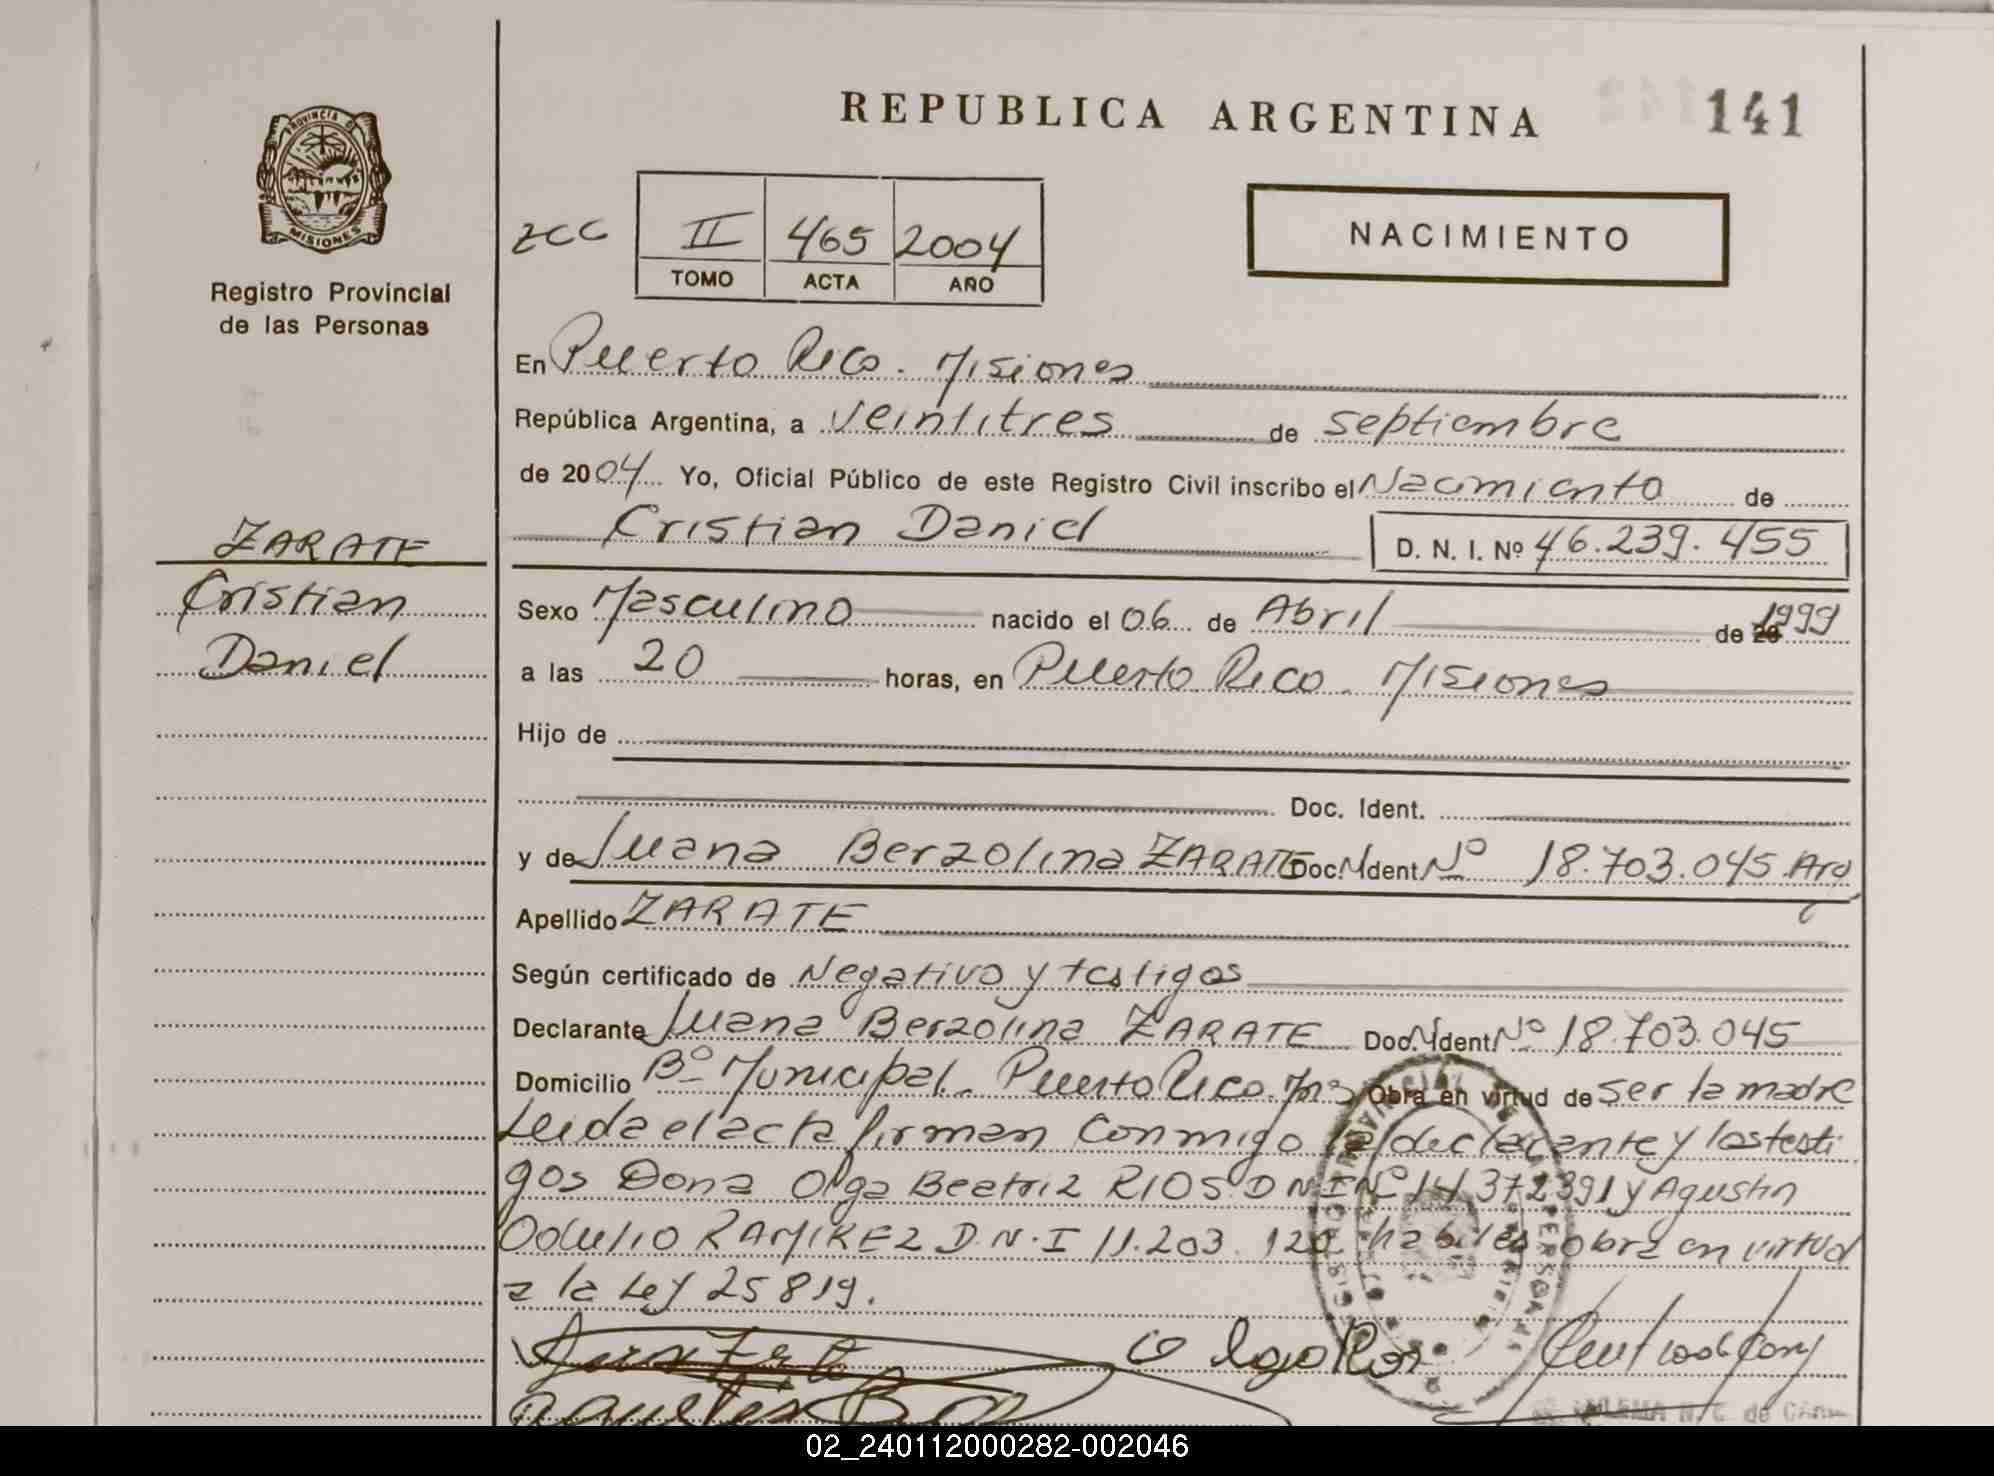 REPUBLICA ARGENTINA 141
PROVINCIA DE
MISIONES
Registro Provincial
de las Personas
ZCC II 465 2004
TOMO ACTA AÑO
NACIMIENTO
En Puerto Rico. Misiones
República Argentina, a veintitres de septiembre
de 2004 Yo, Oficial Público de este Registro Civil inscribo el Nacimiento de
Cristian Daniel D. N. I. Nº 46.239.455
ZARATE
Cristian
Daniel
Sexo Masculino nacido el 06 de Abril de 20 1999
a las 20 horas, en Puerto Rico. Misiones
Hijo de
Doc. Ident.
y de Juana Berzolina ZARATE Doc. Ident. Nº 18.703.045 Arg
Apellido ZARATE
Según certificado de Negativo y testigos
Declarante Juana Berzolina ZARATE Doc. Ident. Nº 18.703.045
Domicilio Bº Municipal. Puerto Rico. Mns Obra en virtud de ser la madre
Leida el acta firman conmigo la declarante y los testi
gos Dona Olga Beatriz RIOS D N I Nº 14 372391 y Agustin
Odulio RAMIREZ D.N.I 11.203.120 habiles obra en virtud
a la Ley 25819.
Olga Rios
02_240112000282-002046